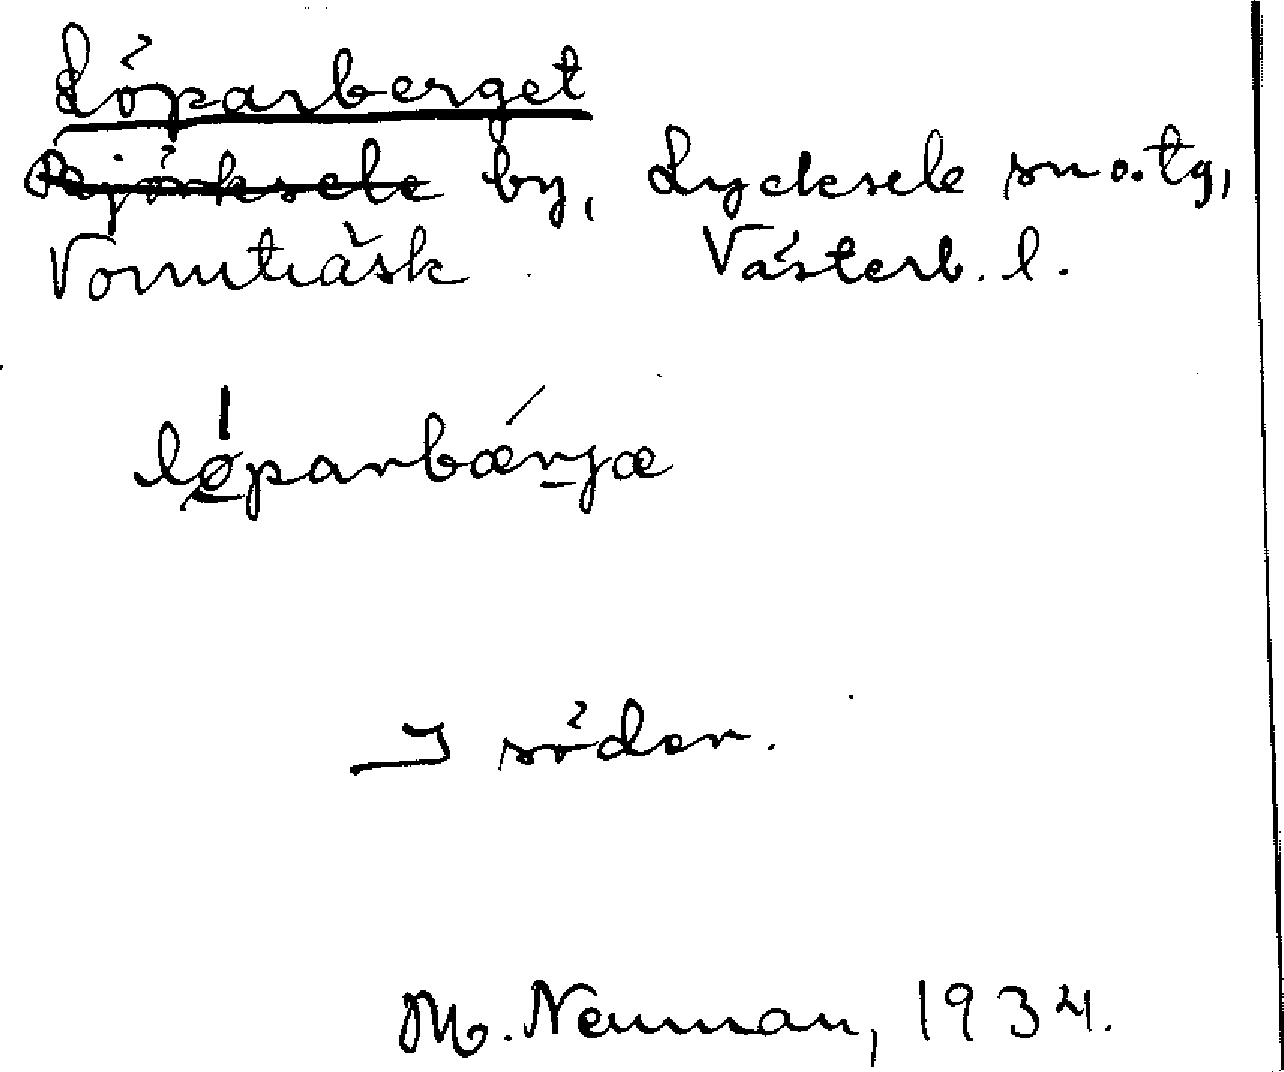 Löparberget
Björksele by, Lycksele sn o. tg,
Vormträsk Västerb. l.
löparbærjæ
I söder.
M. Neuman, 1934.